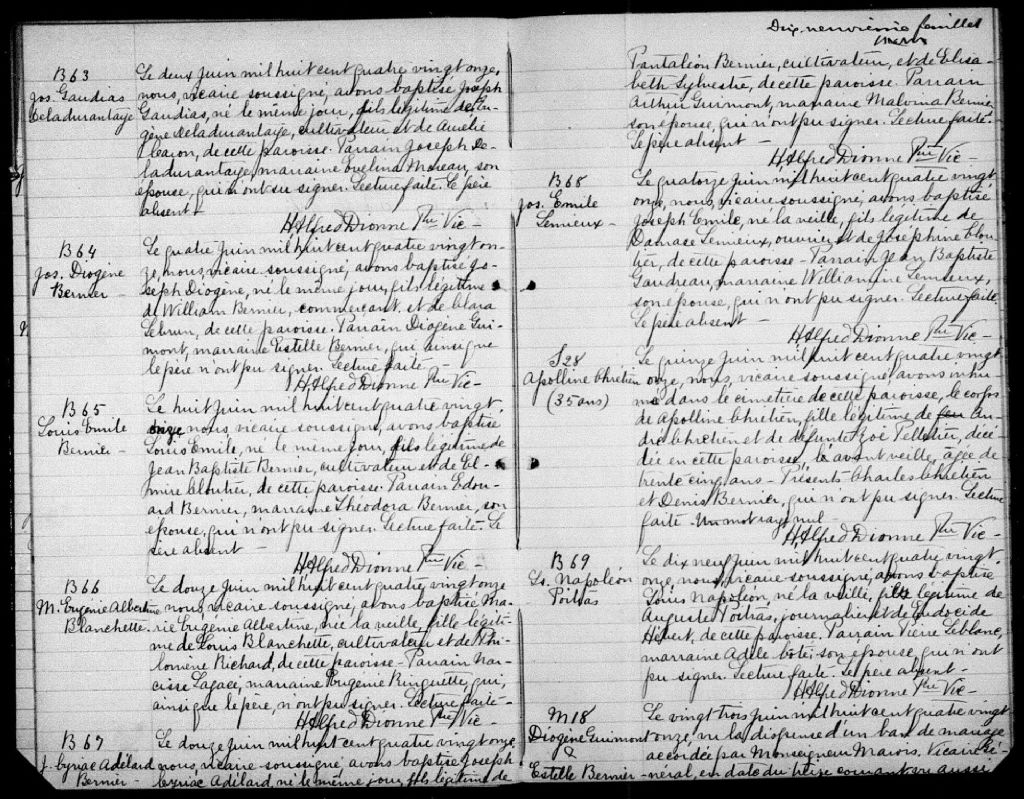 B63
Jos. Gaudias
Deladurantaye
Le deux juin mil huit cent quatre vingt onze,
nous, vicaire soussigné, avons baptisé Joseph
Gaudias, né le même jour, fils légitime de Eu-
gène Deladurantaye, cultivateur et de Amélie
Caron, de cette paroisse. Parrain Joseph De-
ladurantaye, marraine Evelina Moreau, son
épouse, qui n'ont pu signer. Lecture faite. Le père
absent
H Alfred Dionne Ptre Vic
B64
Jos. Diogène
Bernier
Le quatre juin mil huit cent quatre vingt on-
ze, nous, vicaire soussigné, avons baptisé Jo-
seph Diogène, né le même jour, fils légitime
de William Bernier, commerçant et de Clara
Lebrun, de cette paroisse. Parrain Diogène Gui-
mont, marraine Estelle Bernier, qui ainsi que
le père n'ont pu signer. Lecture faite
H Alfred Dionne Ptre Vic
B65
Louis Emile
Bernier
Le huit juin mil huit cent quatre vingt
onze, nous, vicaire soussigné, avons baptisé
Louis Emile, né le même jour, fils légitime de
Jean Baptiste Bernier, cultivateur et de El-
mire Cloutier, de cette paroisse. Parrain Edou-
ard Bernier, marraine Théodora Bernier, son
épouse, qui n'ont pu signer. Lecture faite. Le
père absent
H Alfred Dionne Ptre Vic
B66
M. Eugénie Albertine
Blanchette
Le douze juin mil huit cent quatre vingt onze
nous, vicaire soussigné, avons baptisé Ma-
rie Eugénie Albertine, née la veille, fille légiti-
me de Louis Blanchette, cultivateur et de Phi-
lomène Richard, de cette paroisse. Parrain Nar-
cisse Lagacé, marraine Eugénie Ringuette, qui,
ainsi que le père, n'ont pu signer. Lecture faite
H Alfred Dionne Ptre Vic
B67
J. Cyriac Adélard
Bernier
Le douze juin mil huit cent quatre vingt onze
nous, vicaire soussigné avons baptisé Joseph
Cyriac Adélard, né le même jour, fils légitime de
Dix neuvième feuillet
Pantaléon Bernier, cultivateur, et de Elisa-
beth Sylvestre, de cette paroisse. Parrain
Arthur Guimont, marraine Malvina Bernier
son épouse, qui n'ont pu signer. Lecture faite.
Le père absent
H Alfred Dionne Ptre Vic
B68
Jos. Emile
Lemieux
Le quatorze juin mil huit cent quatre vingt
onze, nous, vicaire soussigné, avons baptisé
Joseph Emile, né la veille, fils légitime de
Damase Lemieux, ouvrier, et de Joséphine Clou-
tier, de cette paroisse. Parrain Jean Baptiste
Gaudreau, marraine Williamine Lemieux,
son épouse, qui n'ont pu signer. Lecture faite.
Le père absent
H Alfred Dionne Ptre Vic
S28
Apolline Chrétien
(35 ans)
Le quinze juin mil huit cent quatre vingt
onze, nous, vicaire soussigné, avons inhu-
mé dans le cimetière de cette paroisse, le corps
de Apolline Chrétien, fille légitime de feu An-
dré Chrétien et de défunte Zoé Pelletier, décé-
dée en cette paroisse, l'avant veille, âgée de
trente cinq ans. Présents Charles Chrétien
et Denis Bernier, qui n'ont pu signer. Lecture
faite. Un mot rayé nul
H Alfred Dionne Ptre Vic
B69
Ls. Napoléon
Poitras
Le dix neuf juin mil huit cent quatre vingt
onze, nous, vicaire soussigné, avons baptisé
Louis Napoléon, né la veille, fils légitime de
Auguste Poitras, journalier et de Eudocide
Hébert, de cette paroisse. Parrain Pierre Leblanc,
marraine Adèle Coté son épouse, qui n'ont
pu signer. Lecture faite. Le père absent
H Alfred Dionne Ptre Vic
M18
Diogène Guimont
&
Estelle Bernier
Le vingt trois juin mil huit cent quatre vingt
onze, vu la dispense d'un ban de mariage
accordée par Monseigneur Marois, Vicaire Gé-
néral, en date du treize courant vu aussi